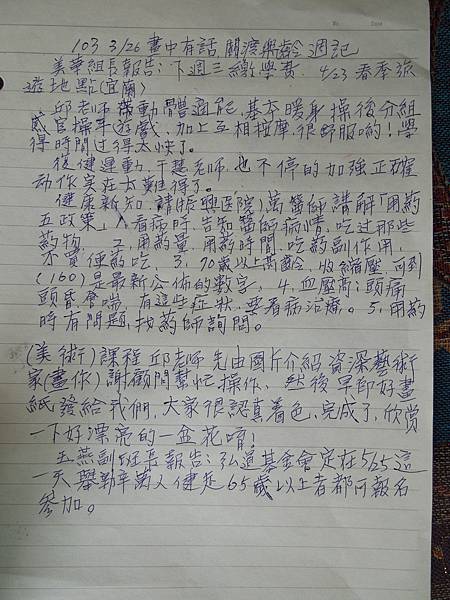 103 3/26 畫中有話 關渡樂齡週記
美華組長報告:下週三繳學費. 4/23春季旅
遊地點(宜蘭)
邱老師帶動體適能,基本暖身操後分組
感官操弄(遊戲),加上互相按摩,很舒服喲!學
得時間过得太快了。
復健運動,千慧老師也不停的加強正確
动作实在太難得了。
健康新知,請(振興医院)萬醫師講解「用葯
五政策」1,看病時告知醫師病情,吃过那些
葯物, 2,用葯量,用葯時間,吃葯副作用,
不買便葯吃, 3,70歲以上高齡,收縮壓,可到
(160)是最新公佈的數字, 4.血壓高;頭痛
頭昏會喘,有這些症狀,要看病治療。5,用葯
時有問題,找葯師詢問。
(美術)課程邱老師先由图片介紹資深藝術
家(畫作)謝顧問幫忙操作,然後早印好畫
紙發給我們,大家很認真着色,完成了,欣赏
一下好漂亮的一盆花唷!
玉燕副班長報告:弘道基金會定在5/25這
一天舉動辛萬人健走65歲以上者都可報名
參加。